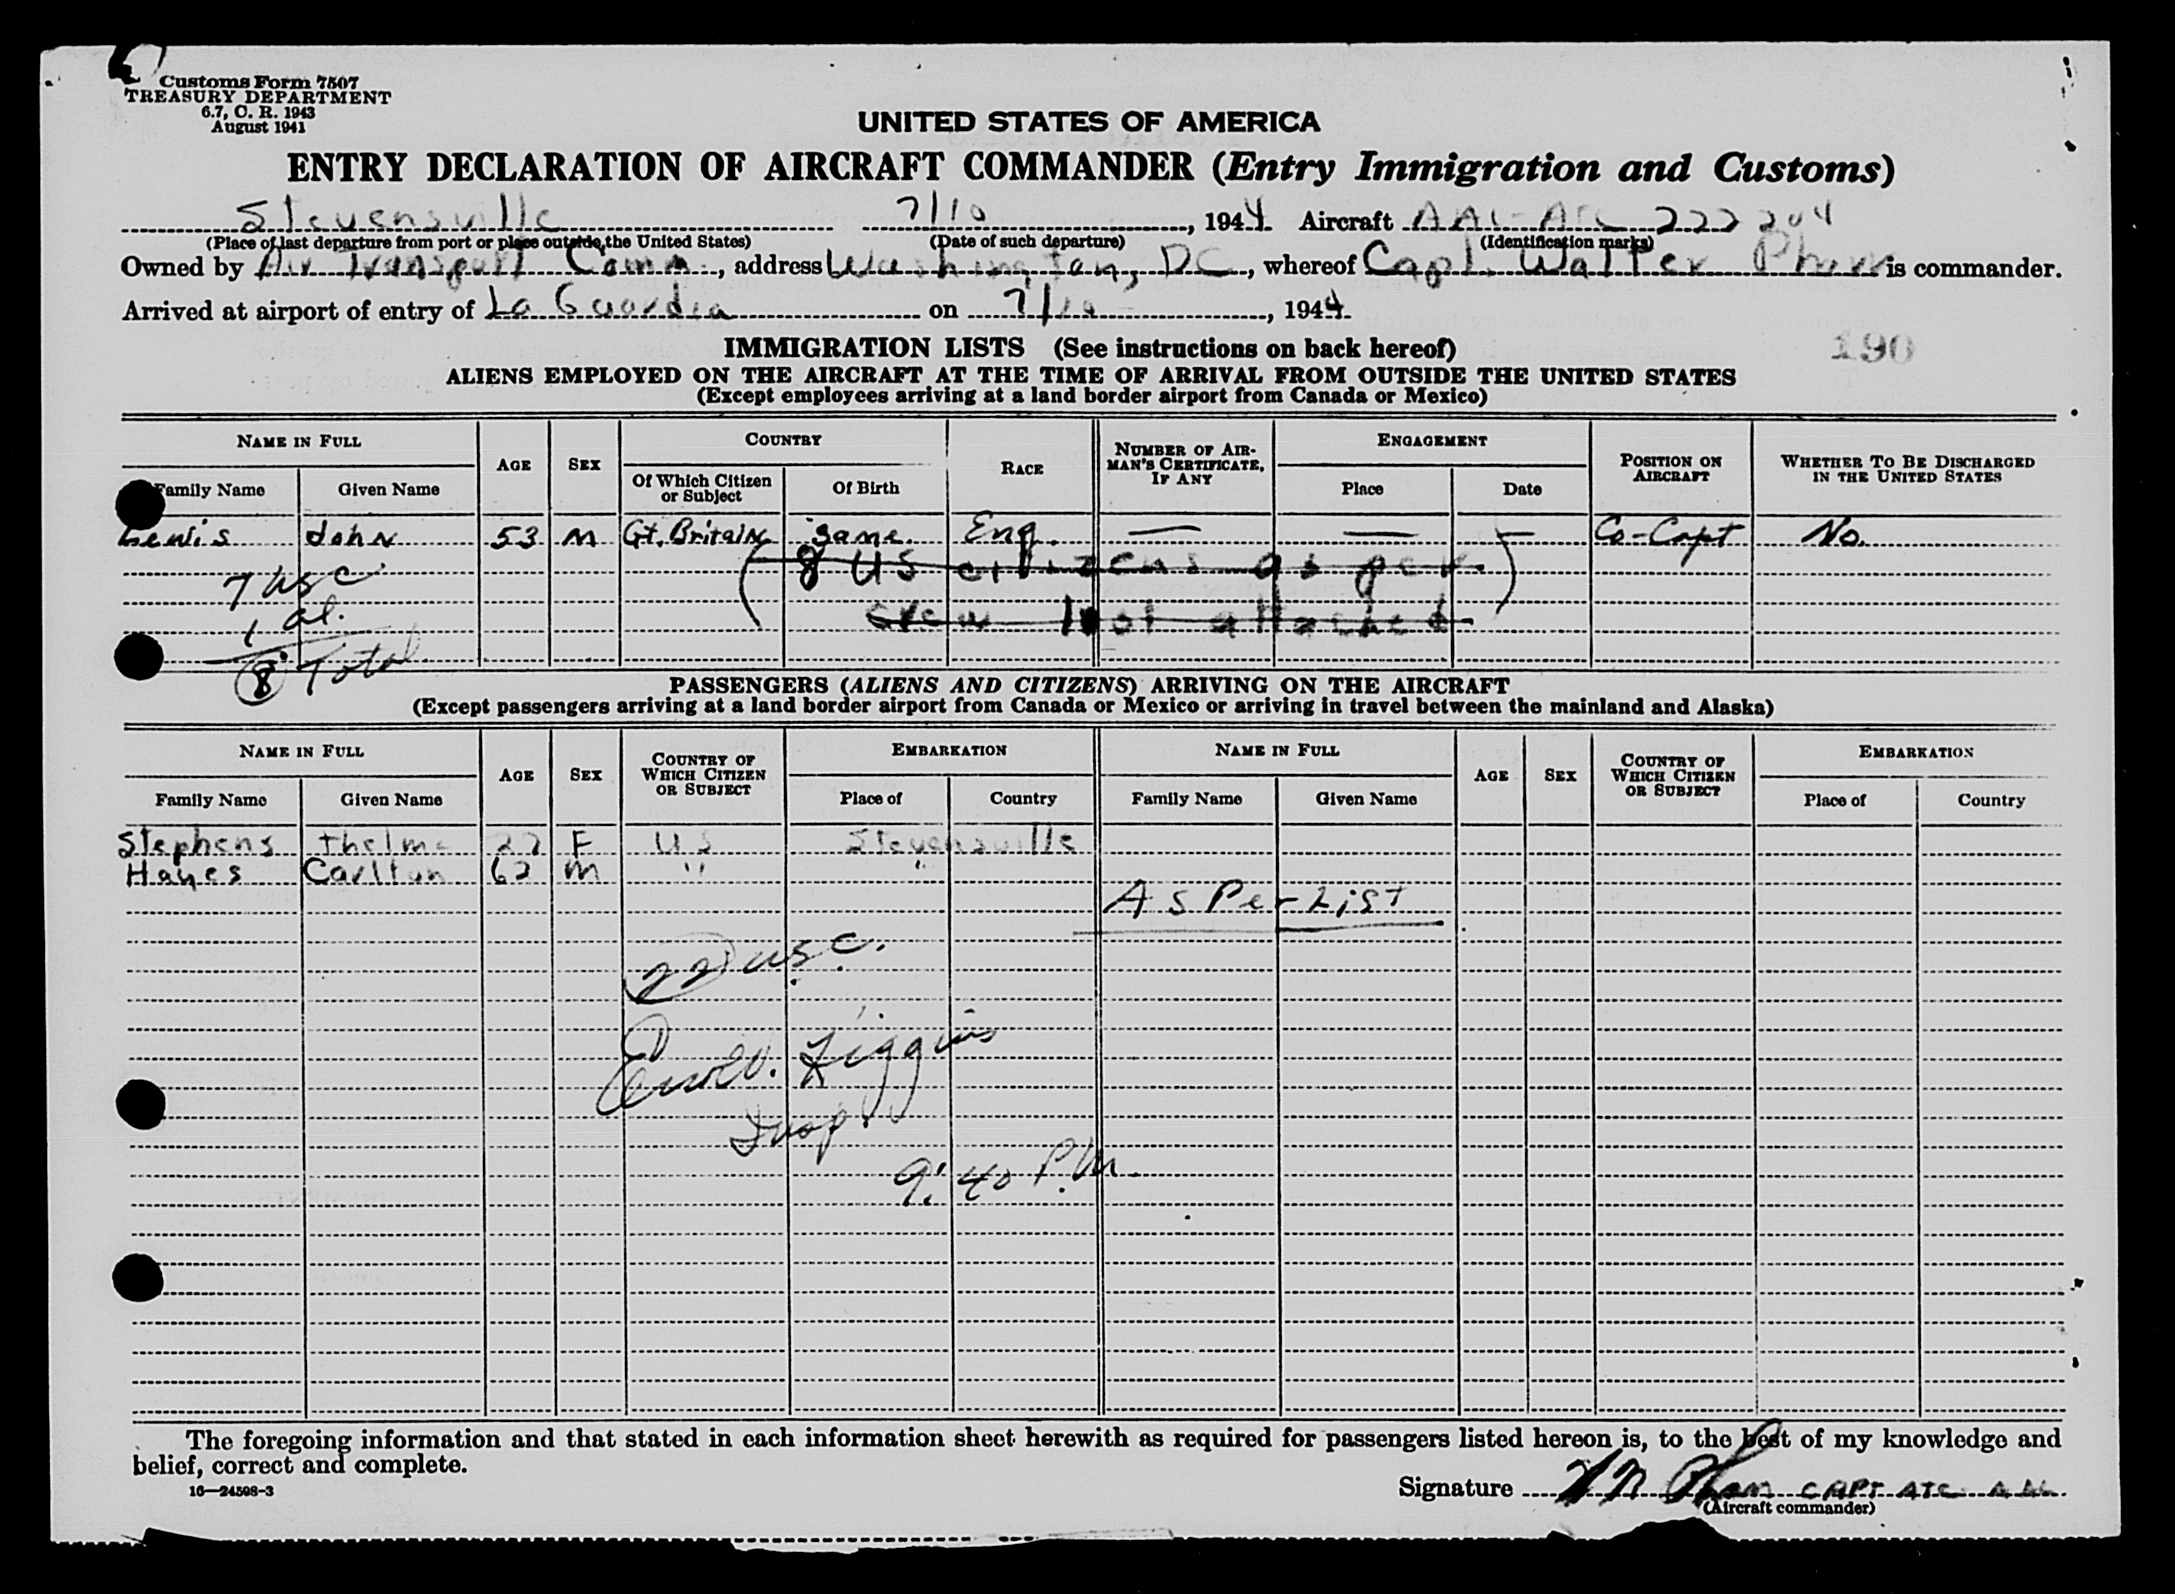 Customs Form 7507
TREASURY DEPARTMENT
6.7, C. R. 1943
August 1941
UNITED STATES OF AMERICA
ENTRY DECLARATION OF AIRCRAFT COMMANDER (Entry Immigration and Customs)
Stevensville 7/10, 1944 Aircraft AAL-ATC 222204
(Place of last departure from port or place outside the United States) (Date of such departure) (Identification marks)
Owned by Air Transport Comm., address Washington, DC, whereof Capt. Walter is commander.
Arrived at airport of entry of La Guardia on 7/10, 1944
190
IMMIGRATION LISTS (See instructions on back hereof)
ALIENS EMPLOYED ON THE AIRCRAFT AT THE TIME OF ARRIVAL FROM OUTSIDE THE UNITED STATES
(Except employees arriving at a land border airport from Canada or Mexico)
NAME IN FULL AGE SEX COUNTRY RACE NUMBER OF AIRMAN'S CERTIFICATE, IF ANY ENGAGEMENT POSITION ON AIRCRAFT WHETHER TO BE DISCHARGED IN THE UNITED STATES
Family Name Given Name Of Which Citizen or Subject Of Birth Place Date
Lewis John 53 M Gt. Britain Same Eng. — — — Co-Capt No.
(8 US citizens as per
crew list attached)
7 usc
1 al.
8 Total
PASSENGERS (ALIENS AND CITIZENS) ARRIVING ON THE AIRCRAFT
(Except passengers arriving at a land border airport from Canada or Mexico or arriving in travel between the mainland and Alaska)
NAME IN FULL AGE SEX COUNTRY OF WHICH CITIZEN OR SUBJECT EMBARKATION NAME IN FULL AGE SEX COUNTRY OF WHICH CITIZEN OR SUBJECT EMBARKATION
Family Name Given Name Place of Country Family Name Given Name Place of Country
Stephens Thelma 27 F US Stevensville
Hayes Carlton 62 M " "
As Per List
22 usc.
Insp.
9:40 P.M.
The foregoing information and that stated in each information sheet herewith as required for passengers listed hereon is, to the best of my knowledge and
belief, correct and complete.
16—24598-3
Signature CAPT ATC AAL
(Aircraft commander)